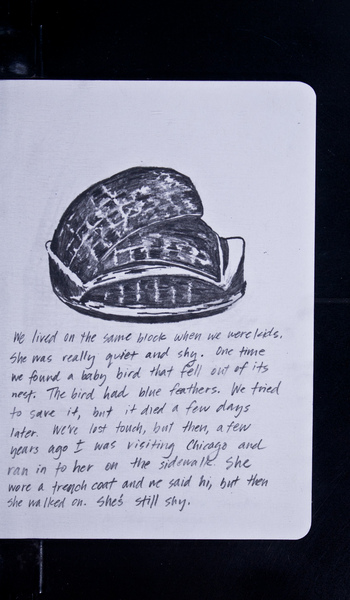 We lived on the same block when we were kids.
She was really quiet and shy. One time
we found a baby bird that fell out of its
nest. The bird had blue feathers. We tried
to save it, but it died a few days
later. We've lost touch, but then, a few
years ago I was visiting Chicago and
ran in to her on the sidewalk. She
wore a trench coat and we said hi, but then
she walked on. She's still shy.